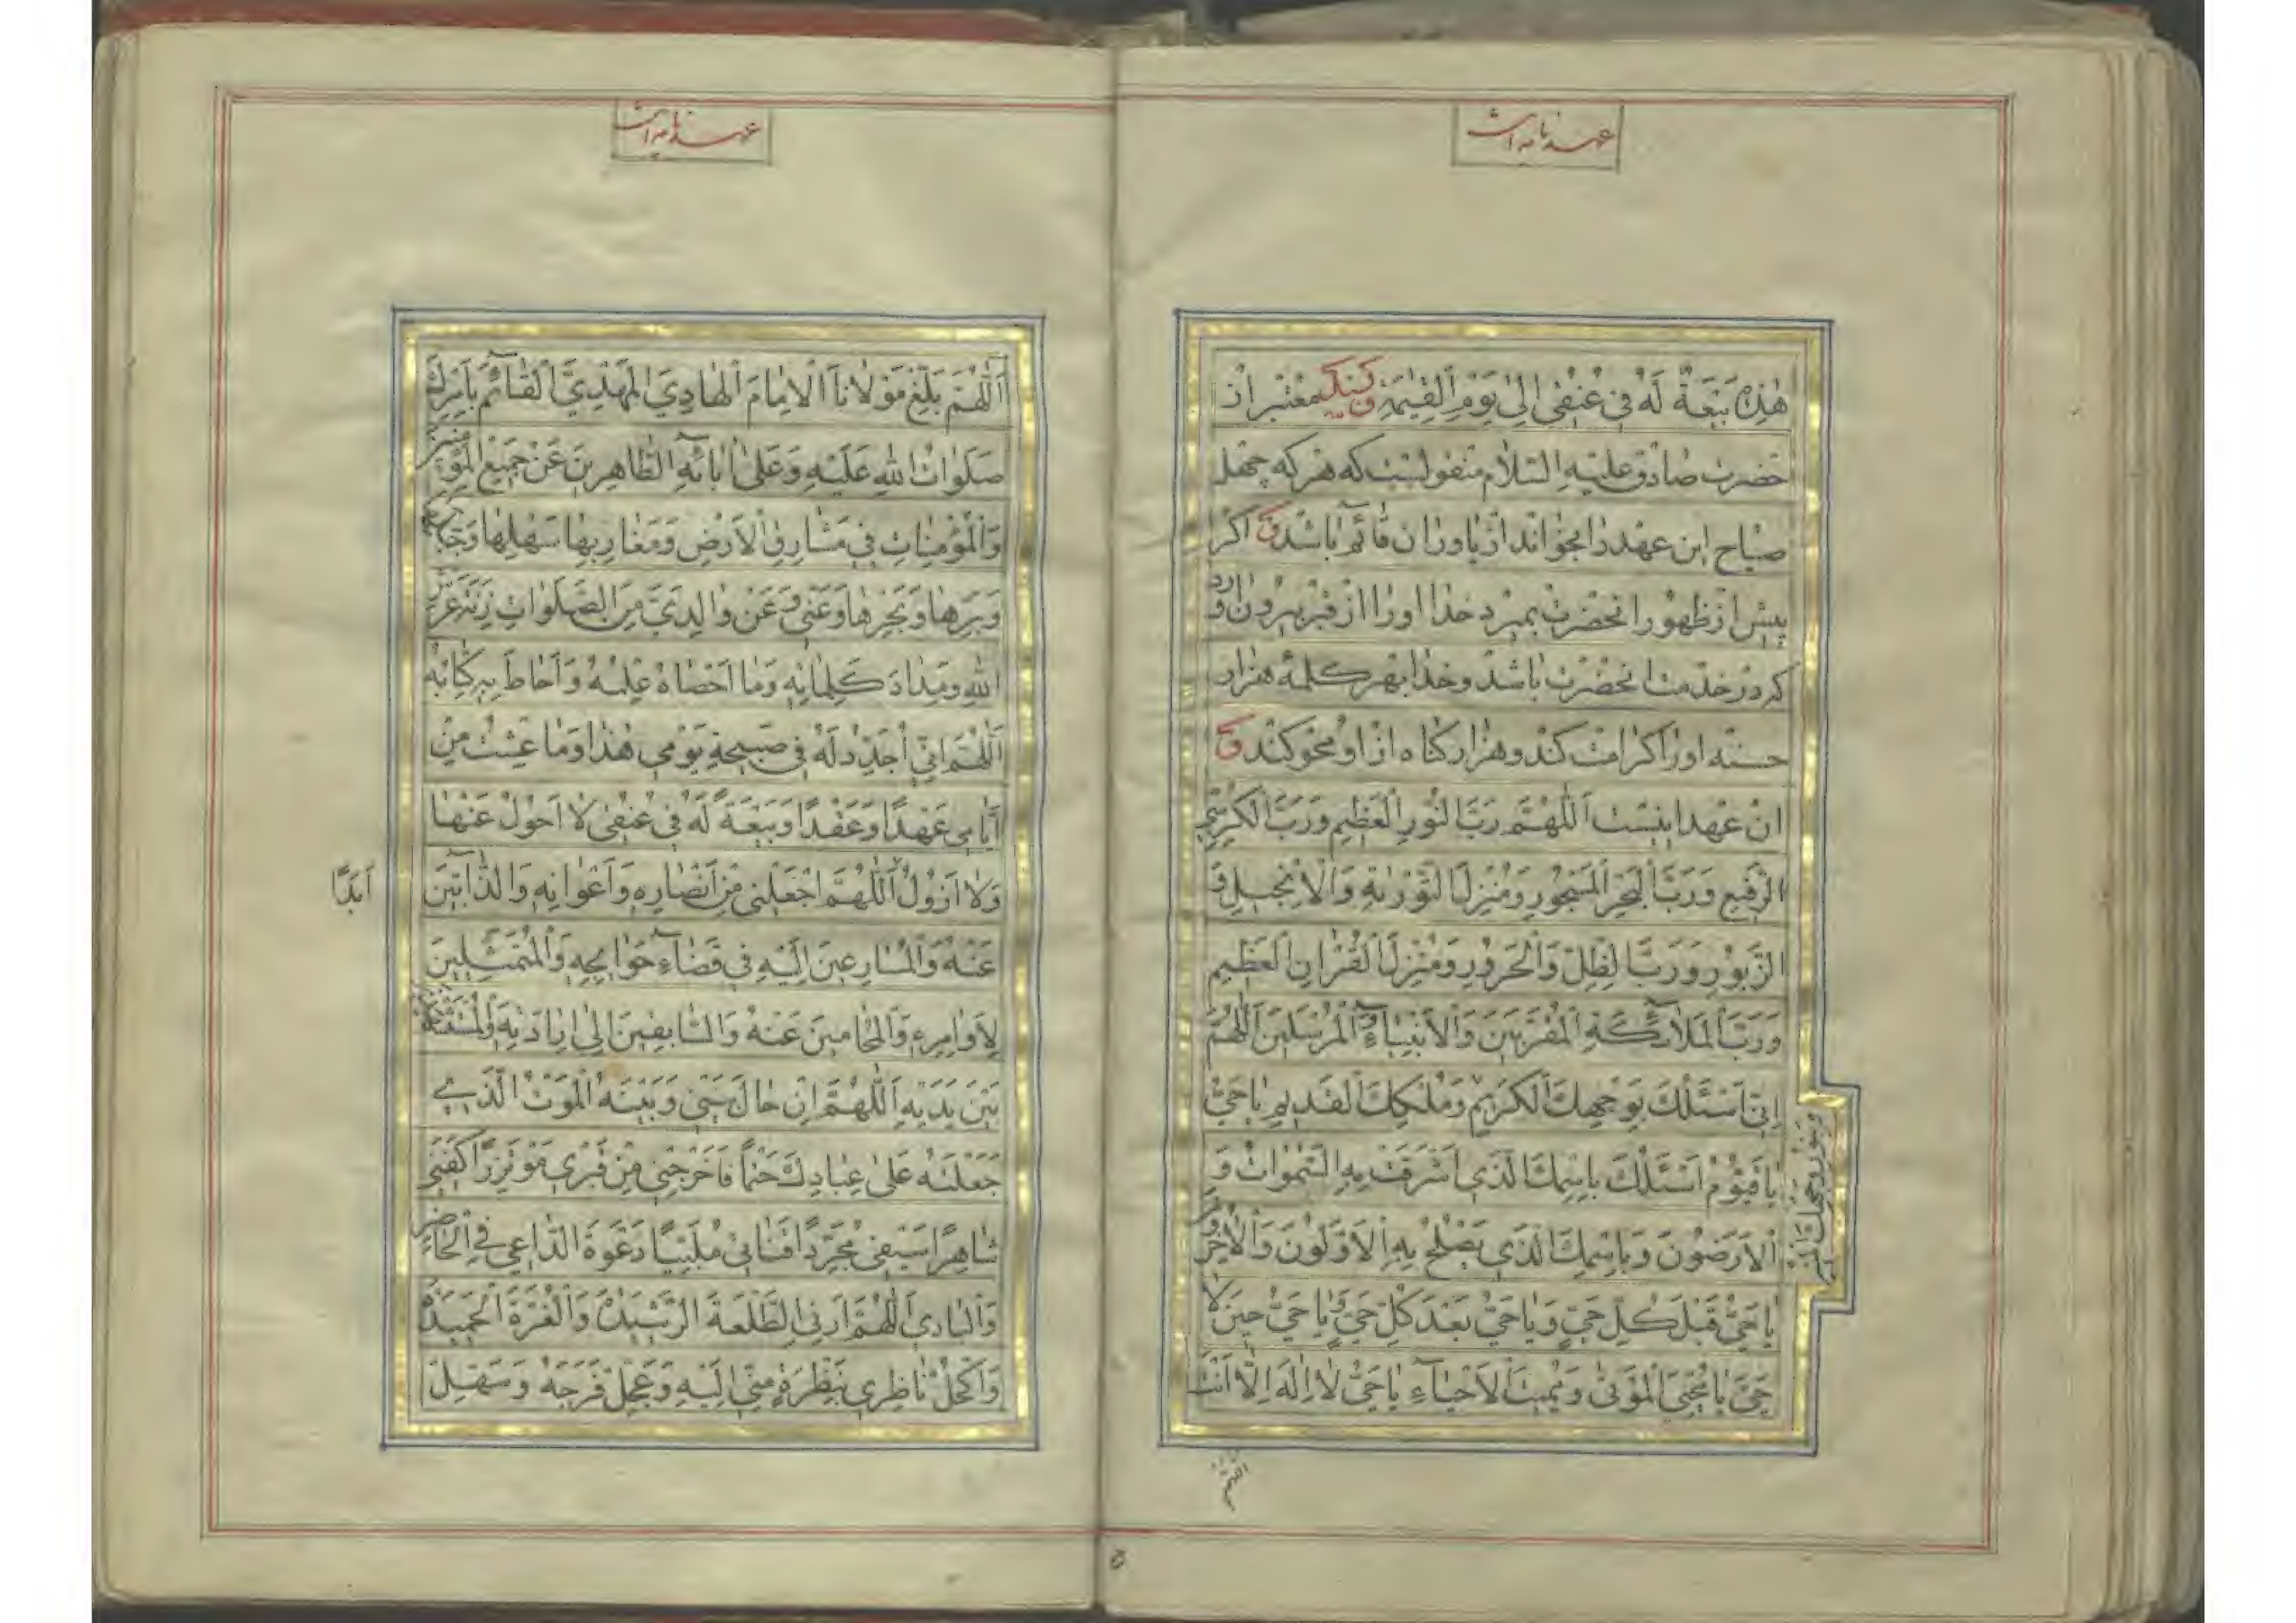 عهدنامه است
هٰذِهِ بَيْعَةٌ لَهُ فى عُنُقى اِلىٰ يَوْمِ الْقِيٰمَةِ وبسند معتبر از
حضرت صادق عليه السّلام منقولست كه هر كه چهل
صباح اين عهد را بخواند از ياوران قائم باشد و اگر
پيش از ظهور آنحضرت بميرد خدا او را از قبر بيرون آورد
كه در خدمت آنحضرت باشد و خدا بهر كلمه هزار
حسنه او را كرامت كند و هزار گناه از او محو كند و
آن عهد اينست اَللّٰهُمَّ رَبَّ النُّورِ الْعَظِيمِ وَرَبَّ الْكُرْسِيِّ
الرَّفيعِ وَرَبَّ الْبَحْرِ الْمَسْجُورِ وَمُنْزِلَ التَّوْرٰيةِ وَالْاِنْجيلِ وَ
الزَّبُورِ وَرَبَّ الظِّلِّ وَالْحَرُورِ وَمُنْزِلَ الْقُرْاٰنِ الْعَظيمِ
وَرَبَّ الْمَلآئِكَةِ الْمُقَرَّبينَ وَالْاَنْبِيآءِ وَالْمُرْسَلينَ اَللّٰهُمَّ
اِنّى اَسْئَلُكَ بِوَجْهِكَ الْكَريمِ وَمُلْكِكَ الْقَديمِ يا حَيُّ
وبنور وجهك المنير
يا قَيُّومُ اَسْئَلُكَ بِاسْمِكَ الَّذى اَشْرَقَتْ بِهِ السَّمٰواتُ وَ
الْاَرَضُونَ وَبِاسْمِكَ الَّذى يَصْلَحُ بِهِ الْاَوَّلُونَ وَالْاٰخِرُونَ
يا حَيُّ قَبْلَ كُلِّ حَيٍّ وَيا حَيُّ بَعْدَ كُلِّ حَيٍّ وَيا حَيُّ حينَ لا
حَيَّ يا مُحْيِيَ الْمَوْتىٰ وَمُميتَ الْاَحْيآءِ يا حَيُّ لا اِلٰهَ اِلّا اَنْتَ
اللّهمّ
۵
عهدنامه است
اَللّٰهُمَّ بَلِّغْ مَوْلانَا الْاِمامَ الْهادِيَ الْمَهْدِيَّ الْقآئِمَ بِاَمْرِكَ
صَلَواتُ اللهِ عَلَيْهِ وَعَلىٰ اٰبآئِهِ الطّاهِرينَ عَنْ جَميعِ الْمُؤْمِنينَ
وَالْمُؤْمِناتِ فى مَشارِقِ الْاَرْضِ وَمَغارِبِها سَهْلِها وَجَبَلِها
وَبَرِّها وَبَحْرِها وَعَنّى وَعَنْ والِدَيَّ مِنَ الصَّلَواتِ زِنَةَ عَرْشِ
اللهِ وَمِدادَ كَلِماتِهِ وَما اَحْصاهُ عِلْمُهُ وَاَحاطَ بِهِ كِتابُهُ
اَللّٰهُمَّ اِنّى اُجَدِّدُ لَهُ فى صَبيحَةِ يَوْمى هٰذا وَما عِشْتُ مِنْ
اَيّامى عَهْدًا وَعَقْدًا وَبَيْعَةً لَهُ فى عُنُقى لا اَحُولُ عَنْها
وَلا اَزُولُ اَللّٰهُمَّ اجْعَلْنى مِنْ اَنْصارِهِ وَاَعْوانِهِ وَالذّآبّينَ
اَبَدًا
عَنْهُ وَالْمُسارِعينَ اِلَيْهِ فى قَضآءِ حَوآئِجِهِ وَالْمُتَمَثِّلينَ
لِاَوامِرِهِ وَالْمُحامينَ عَنْهُ وَالسّابِقينَ اِلىٰ اِرادَتِهِ وَالْمُسْتَشْهَدينَ
بَيْنَ يَدَيْهِ اَللّٰهُمَّ اِنْ حالَ بَيْنى وَبَيْنَهُ الْمَوْتُ الَّذى
جَعَلْتَهُ عَلىٰ عِبادِكَ حَتْمًا فَاَخْرِجْنى مِنْ قَبْرى مُؤْتَزِرًا كَفَنى
شاهِرًا سَيْفى مُجَرِّدًا قَناتى مُلَبِّيًا دَعْوَةَ الدّاعى فِى الْحاضِرِ
وَالْبادى اَللّٰهُمَّ اَرِنِى الطَّلْعَةَ الرَّشيدَةَ وَالْغُرَّةَ الْحَميدَةَ
وَاكْحُلْ ناظِرى بِنَظْرَةٍ مِنّى اِلَيْهِ وَعَجِّلْ فَرَجَهُ وَسَهِّلْ